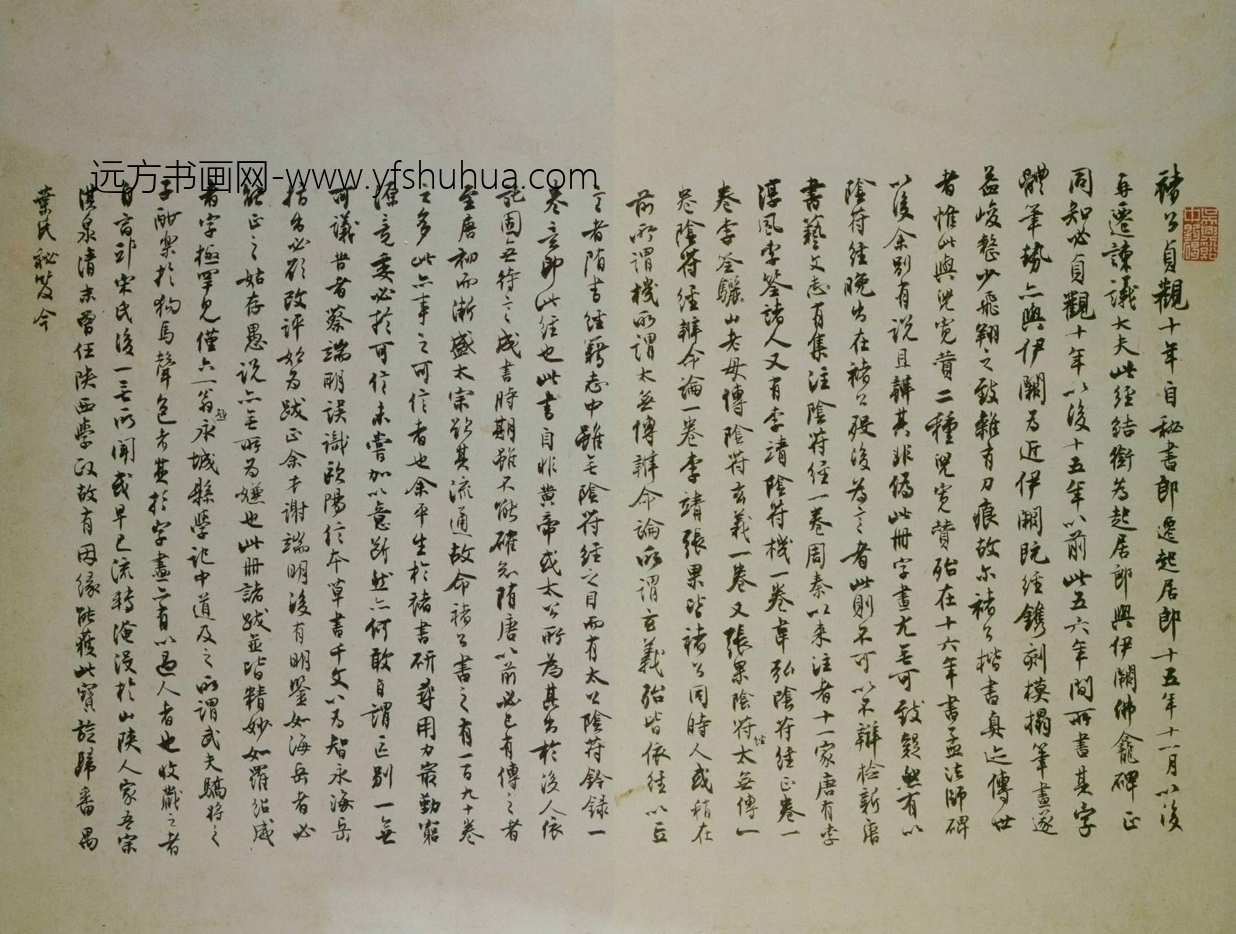 褚公貞觀十年自秘書郎遷起居郎十五年十一月以後
再遷諫議大夫此經結銜為起居郎與伊闕佛龕碑正
同知必貞觀十年以後十五年以前此五六年間所書其字
體筆勢亦與伊闕為近伊闕既經鐫刻模搨筆畫遂
益峻整少飛翔之致雜有刀痕故尔褚公楷書真迹傳世
者惟此與兒寬贊二種兒寬贊殆在十六年書孟法師碑
以後余別有說且辯其非偽此冊字畫尤無可致疑然有以
陰符經晚出在褚公歿後為言者此則不可以不辯檢新唐
書藝文志有集注陰符經一卷周秦以來注者十一家唐有李
淳風李筌諸人又有李靖陰符機一卷韋弘陰符經正卷一
卷李筌驪山老母傳陰符玄義一卷又張果陰符經太無傳一
卷陰符經辯命論一卷李靖張果皆褚公同時人或稍在
前所謂機所謂太無傳辯命論所謂玄義殆皆依經以立
言者隋書經籍志中雖無陰符經之目而有太公陰符鈐錄一
卷意即此經也此書自非黃帝或太公所為其出於後人依
託固無待言成書時期雖不能確知隋唐以前必已有傳之者
至唐初而漸盛太宗欲其流通故命褚公書之有一百九十卷
之多此亦事之可信者也余平生於褚書研尋用力最勤窮
源竟委必於可信未嘗加以意斷然亦何敢自謂區別一無
可議昔者蔡端明誤識歐陽信本草書千文以為智永海岳
指出必欲改評好為跋正余才謝端明後有明鑒如海岳者必
能正之姑存愚說亦無所為嫌也此冊諸跋並皆精妙如羅紹威
者字極罕見僅六一翁於永城縣學記中道及之所謂武夫驕將之
子酣樂於狗馬聲色者其於字畫亦有以過人者也收藏之者
自言邵宋氏後一無所聞或早已流轉淹沒於山陝人家吾宗
淇泉清末曾任陝西學政故有因緣能獲此寶旋歸番禺
葉氏秘笈今
远方书画网-www.yfshuhua.com